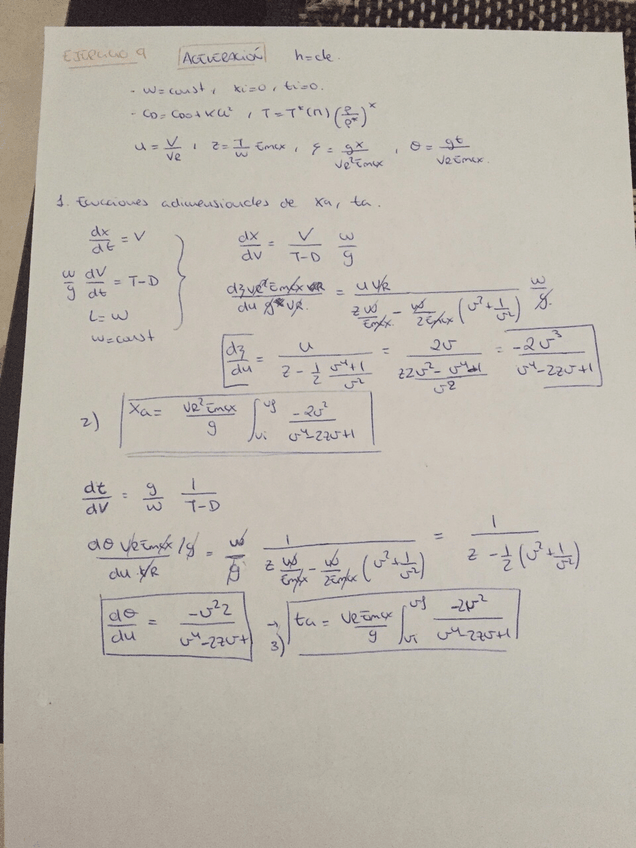 EJERCICIO 9 ACELERACIÓN h=cte.
- W=const, xi=0, ti=0.
- CD = CD0+KCL², T=T*(Π)(ρ/ρ*)^x
u = V/VR, z = T/W Emax, ξ = gx/(VR² Emax), θ = gt/(VR Emax).
1. Ecuaciones adimensionales de xa, ta.
dx/dt = V
W/g dV/dt = T-D
L=W
W=const
dx/dV = V/(T-D) W/g
dξ VR² Emax VR/(du g VR) = u VR/(z W/Emax - W/(2Emax) (u²+1/u²)) W/g
dξ/du = u/(z - 1/2 (u⁴+1)/u²) = 2u/((z2u² - u⁴+1)/u²) = -2u³/(u⁴-2zu+1)
2) xa = VR² Emax/g ∫_{ui}^{uf} -2u²/(u⁴-2zu+1)
dt/dV = g/W 1/(T-D)
dθ VR Emax/g/(du VR) = W/g 1/(z W/Emax - W/(2Emax) (u²+1/u²)) = 1/(z - 1/2 (u²+1/u²))
dθ/du = -u²2/(u⁴-2zu+1 → 3) ta = VR Emax/g ∫_{ui}^{uf} -2u²/(u⁴-2zu+1)